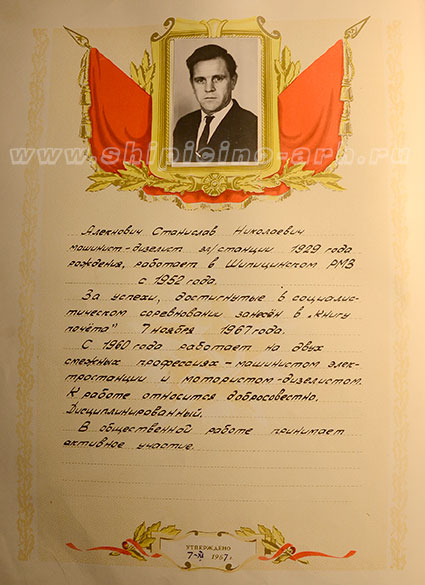 www.shipicino-arh.ru
Алехнович Станислав Николаевич
машинист-дизелист эл/станции 1929 года
рождения, работает в Шипицинском РМЗ
с 1952 года.
За успехи, достигнутые в социалис-
тическом соревновании занесён в „книгу
почёта" 7 ноября 1967 года.
С 1960 года работает на двух
смежных профессиях – машинистом элек-
тростанции и мотористом-дизелистом.
К работе относится добросовестно.
Дисциплинированный.
В общественной работе принимает
активное участие.
УТВЕРЖДЕНО
7-XI 1967 г.